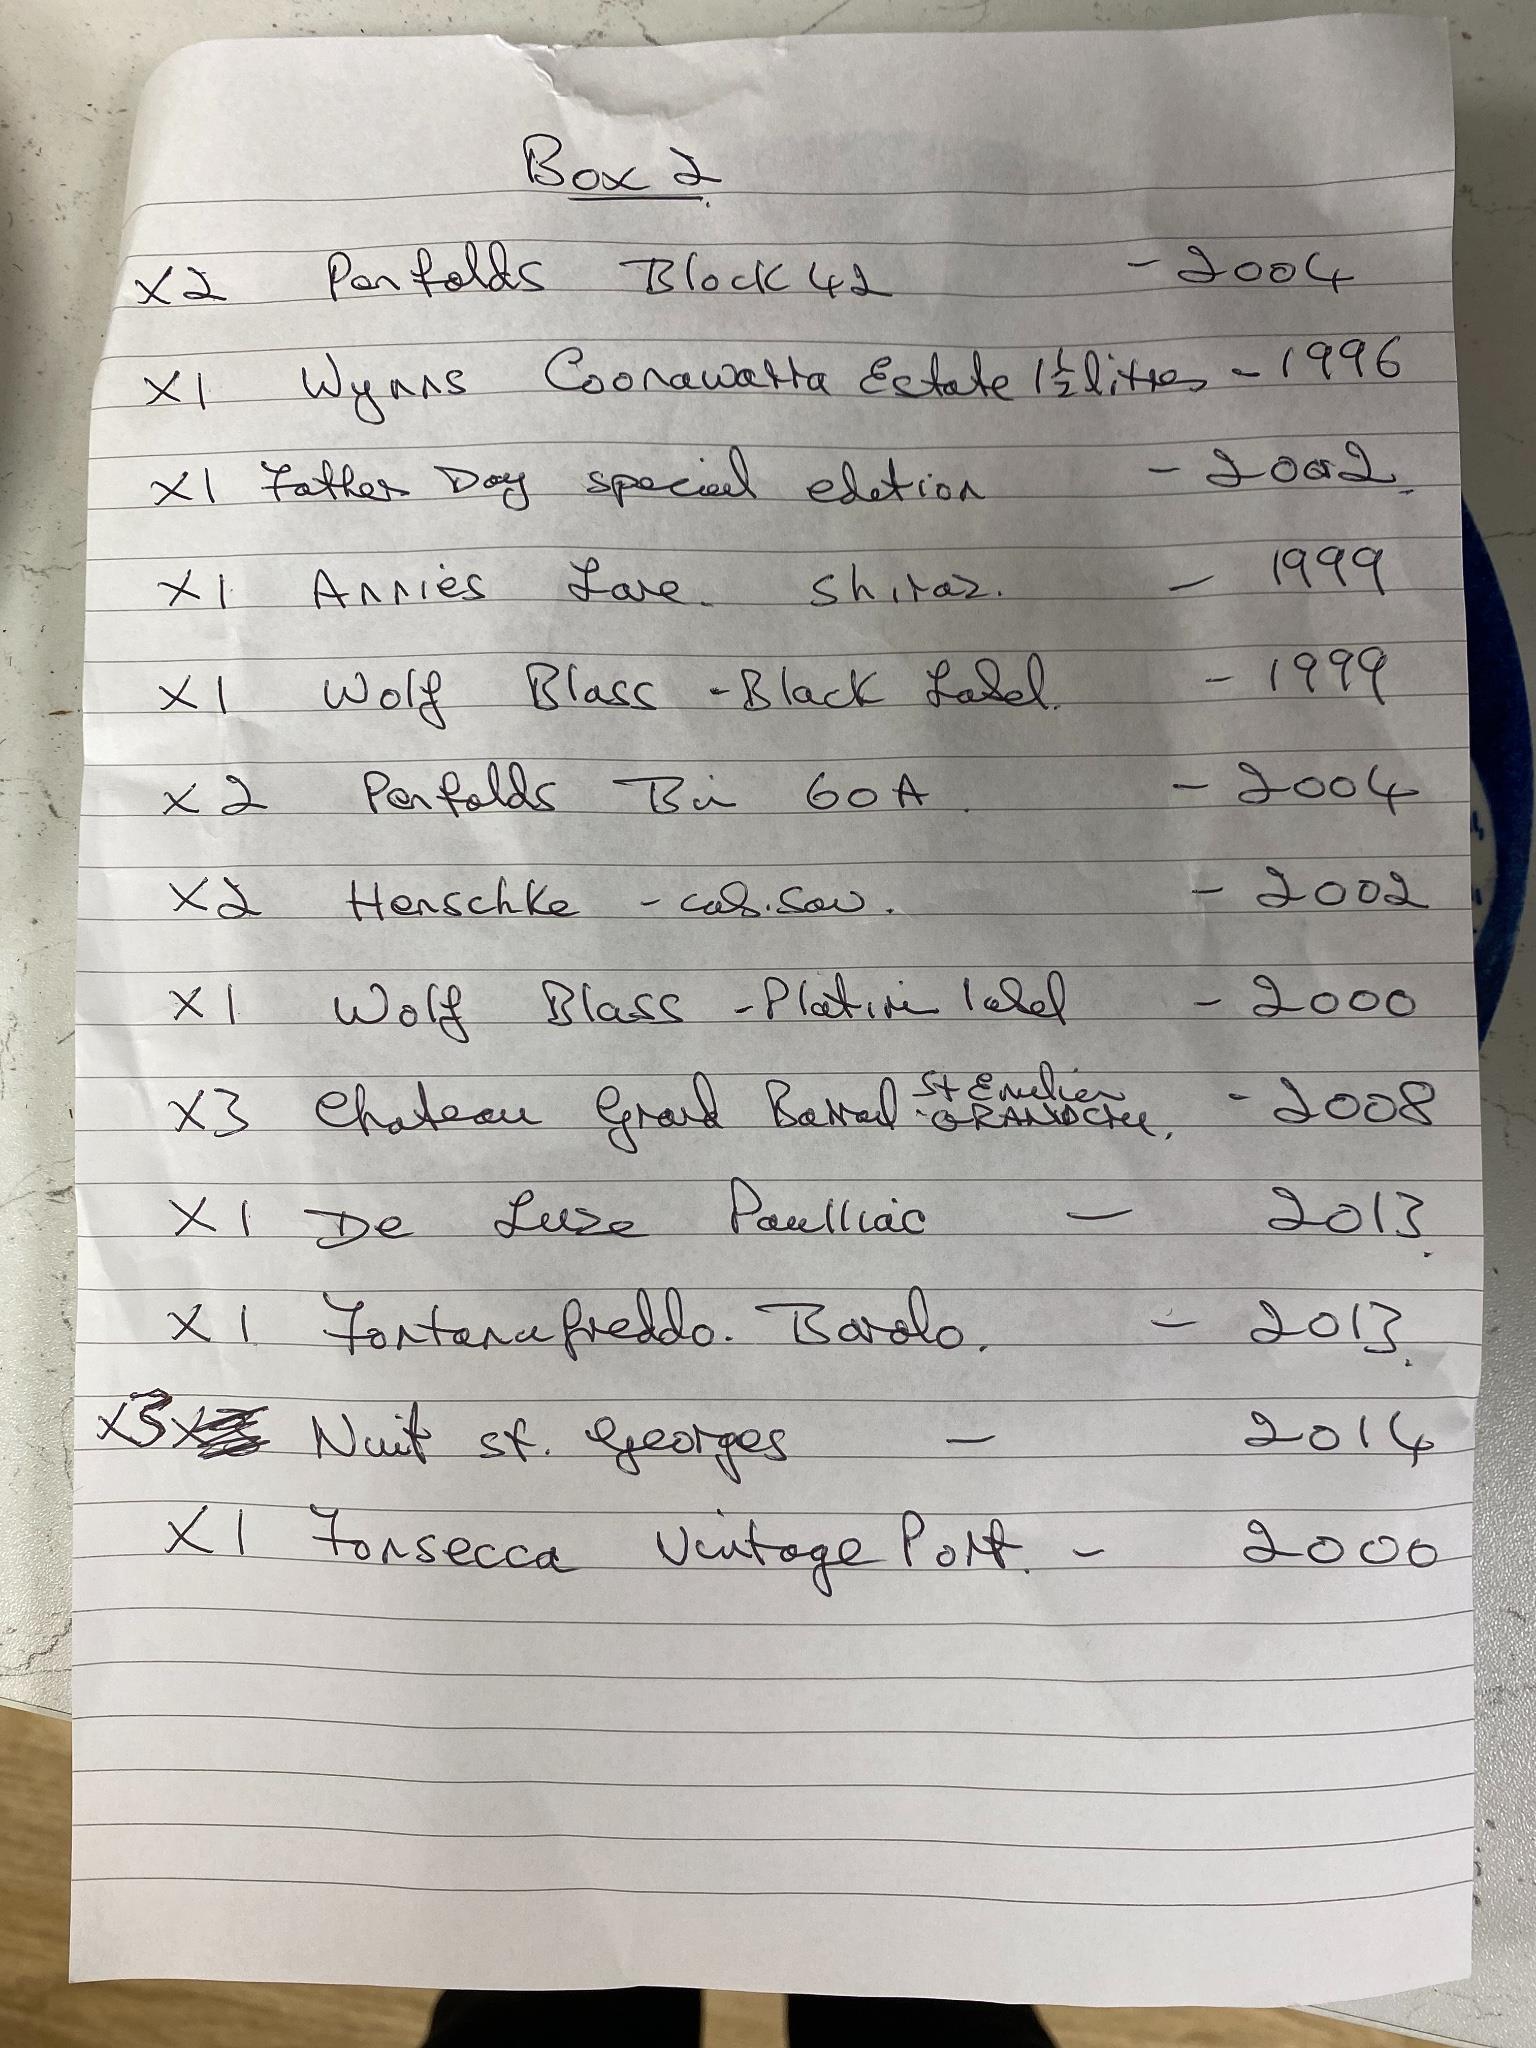 Box 2
x2 Penfolds Block 42 - 2004
x1 Wynns Coonawarra Estate 1½ litres - 1996
x1 Father Day special edetion - 2002.
x1 Annies Lane. Shiraz. - 1999
x1 Wolf Blass - Black Label. - 1999
x2 Penfolds Bin 60A. - 2004
x2 Henschke - cab. Sav. - 2002
x1 Wolf Blass - Platini label - 2000
x3 Chateau Grand Barrail St Emilien GRANDCru. - 2008
x1 De Luze Paulliac - 2013.
x1 Fontanafreddo. Barolo. - 2013.
x3 Nuit st. Georges - 2014
x1 Fonsecca Vintage Port. - 2000